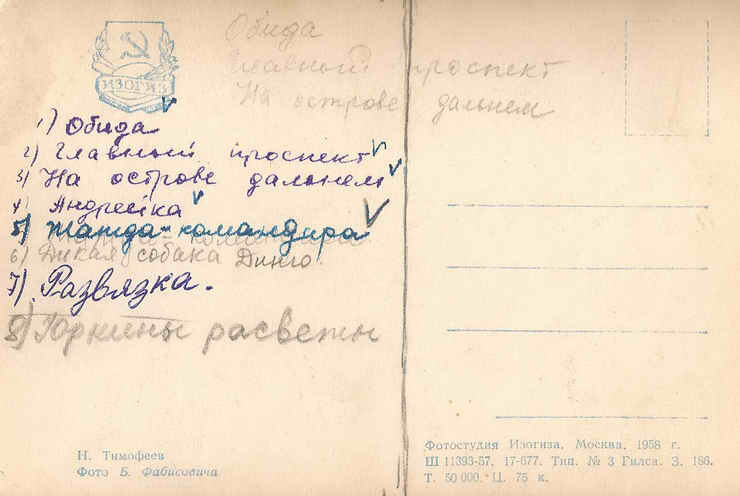 ИЗОГИЗ
Обида
Главный проспект
На острове дальнем
1) Обида
2) Главный проспект
3) На острове дальнем
4) Андрейка
5) Тагида-командира
6) Дикая собака Динго.
7) Развязка.
8) расветы
Н. Тимофеев
Фото Б. Фабисовича
Фотостудия Изогиза, Москва, 1958 г.
Ш 11393-57. 17-677. Тип. № 3 Гилса. З. 186.
Т. 50 000. Ц. 75 к.